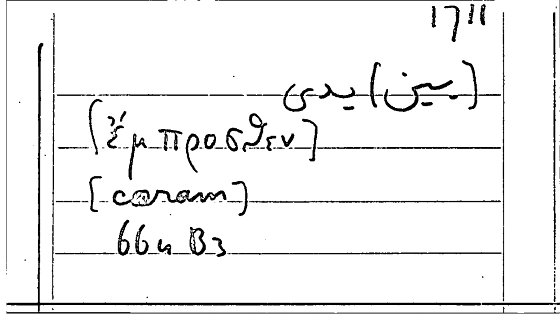 1711
[بين) يدى
[ἔμπροσθεν]
[coram]
66u B3